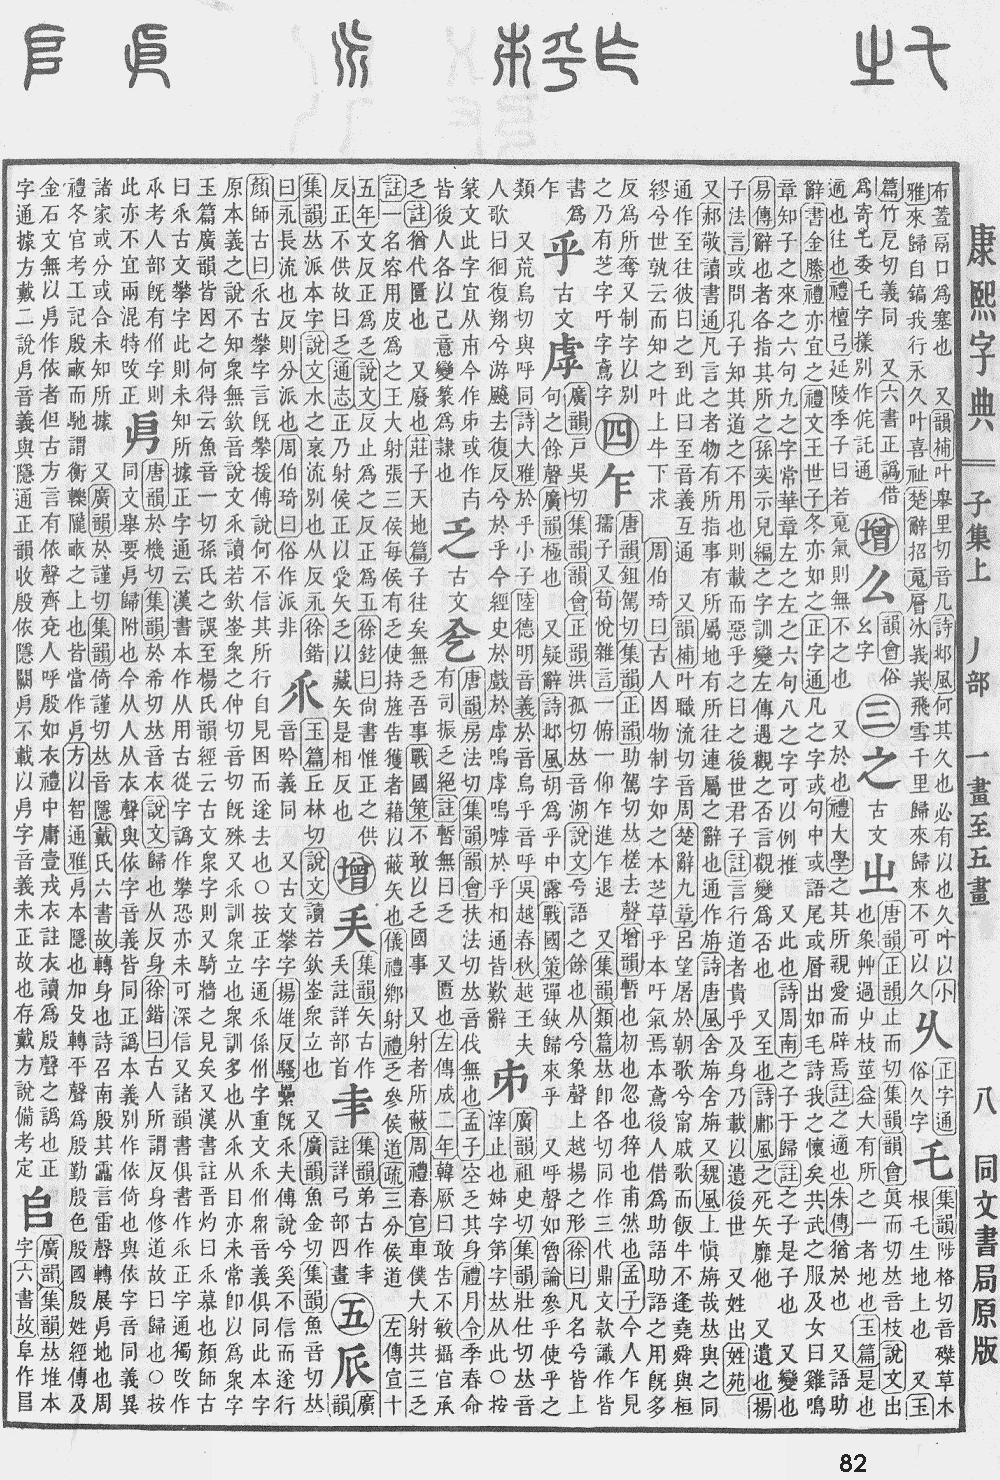 康熙字典 子集上 丿部 一畫至五畫 八 同文書局原版
布蓋鬲口爲塞也 又韻補叶舉里切音几詩邶風何其久也必有以也久叶以
雅來歸自鎬我行永久叶喜祉楚辭招䰟層冰峩峩飛雪千里歸來歸來不可以久
乆 正字通 俗久字
乇 集韻陟格切音磔草木根乇生地上也 又玉
篇竹尼切義同 又六書正譌借爲寄乇委乇字㨾別作侂託通
增
么 韻會俗幺字
三
之 古文㞢 唐韻正韻止而切集韻韻會眞而切𠀤音枝說文出也象艸過屮枝莖益大有所之一者地也玉篇是也
適也往也禮檀弓延陵季子曰若䰟氣則無不之也 又於也禮大學之其所親愛而辟焉註之適也朱傳猶於也 又語助
辭書金縢禮亦宜之禮文王世子冬亦如之正字通凡之字或句中或語尾或層出如毛詩我之懷矣共武之服及女曰雞鳴
章知子之來之六句九之字常華章左之左之六句八之字可以例推 又此也詩周南之子于歸註之子是子也 又變也
易傳辭也者各指其所之孫奕示兒編之字訓變左傳遇觀之否言觀變爲否也 又至也詩鄘風之死矢靡他 又遺也揚
子法言或問孔子知其道之不用也則載而惡乎之曰之後世君子註言行道者貴乎及身乃載以遺後世 又姓出姓苑
又郝敬讀書通凡言之者物有所指事有所屬地有所往連屬之辭也通作旃詩唐風舍旃舍旃又魏風上愼旃哉𠀤與之同
通作至往彼曰之到此曰至音義互通 又韻補叶職流切音周楚辭九章呂望屠於朝歌兮甯戚歌而飯牛不逢堯舜與桓
繆兮世孰云而知之叶上牛下求 周伯琦曰古人因物制字如之本芝草乎本吁氣焉本鳶後人借爲助語助語之用旣多
反爲所奪又制字以別之乃有芝字吁字鳶字
四
乍 唐韻鉏駕切集韻正韻助駕切𠀤槎去聲增韻暫也初也忽也猝也甫然也孟子今人乍見孺子又荀悅雜言一俯一仰乍進乍退 又集韻類篇𠀤卽各切同作三代鼎文款識作皆
書爲乍
乎 古文虖 廣韻戸吳切集韻韻會正韻洪孤切𠀤音湖說文兮語之餘也从兮象聲上越揚之形徐曰凡名兮皆上句之餘聲廣韻極也 又疑辭詩邶風胡爲乎中露戰國策彈鋏歸來乎 又呼聲如曾論參乎使乎之
類 又荒烏切與呼同詩大雅於乎小子陸德明音義於音烏乎音呼吳越春秋越王夫
人歌曰徊復翔兮游颺去復反兮於乎今經史於戲於虖嗚虖嗚嘑於乎相通皆歎辭
𠂔 廣韻祖史切集韻壯仕切𠀤音滓止也姊字第字𠀤从此〇按
篆文此字宜从巿今作𠂔或作巿皆後人各以己意變篆爲隸也
乏 古文𠓟 唐韻房法切集韻韻會扶法切𠀤音伐無也孟子空乏其身禮月令季春命有司振乏絕註暫無曰乏 又匱也左傳成二年韓厥曰敢告不敏攝官承
乏註猶代匱也 又廢也莊子天地篇子往矣無乏吾事戰國策不敢以乏國事 又射者所蔽周禮春官車僕大射共三乏
註一名容用皮爲之王大射張三侯每侯有乏使持旌告獲者藉以蔽矢也儀禮鄉射禮乏參侯道疏三分侯道 左傳宣十
五年文反正爲乏說文反止爲之反正爲乏徐鉉曰尙書惟正之供
反正不供故曰乏通志正乃射侯正以受矢乏以藏矢是相反也
增
𠂕 集韻矢古作𠂕註詳部首
𢎨 集韻弟古作𢎨註詳弓部四畫
五
𠂢 廣韻集韻𠀤派本字說文水之衺流別也从反永徐鍇曰永長流也反則分派也周伯琦曰俗作派非
乑 玉篇丘林切音吟義同 說文讀若欽崟衆立也 又廣韻魚金切集韻魚音切𠀤 又古文攀字揚雄反騷纍旣乑夫傳說兮奚不信而遂行
顏師古曰乑古攀字言旣攀援傅說何不信其所行自見困而遂去也〇按正字通乑係㐺字重文乑㐺衆音義俱同此本字
原本義之說不知衆無欽音說文乑讀若欽崟衆之仲切音切旣殊又乑訓衆立也衆訓多也从乑从目亦未常卽以爲衆字
玉篇廣韻皆因之何得云魚音一切孫氏之誤至楊氏韻經云古文衆字則又騎牆之見矣又漢書註晉灼曰乑慕也顏師古
曰乑古文攀字此則未知所據正字通云漢書本作从用古從字譌作攀恐亦未可深信又諸韻書俱書作乑正字通獨攺作
乑考人部旣有㐺字則此亦不宜兩混特攺正
㐆 唐韻於機切集韻於希切𠀤音衣說文歸也从反身徐鍇曰古人所謂反身修道故曰歸也〇按同文舉要㐆歸附也今从人从衣聲與依字音義皆同正譌本義別作依倚也與依字音同義異
諸家或分或合未知所據 又廣韻於謹切集韻倚謹切𠀤音隱戴氏六書故轉身也詩召南殷其靁言雷聲轉展㐆地也周
禮冬官考工記殷畝而馳謂衡轢隴畝之上也皆當作㐆方以智通雅㐆本隱也加殳轉平聲爲殷勤殷色殷國殷姓經傳及
金石文無以㐆作依者但古方言有依聲齊兗人呼殷如衣禮中庸壹戎衣註衣讀爲殷聲之譌也正
字通據方戴二說㐆音義與隱通正韻收殷依隱闕㐆不載以㐆字音義未正故也存戴方說備考定
𠂤 廣韻集韻𠀤堆本字六書故阜作𨸏
82